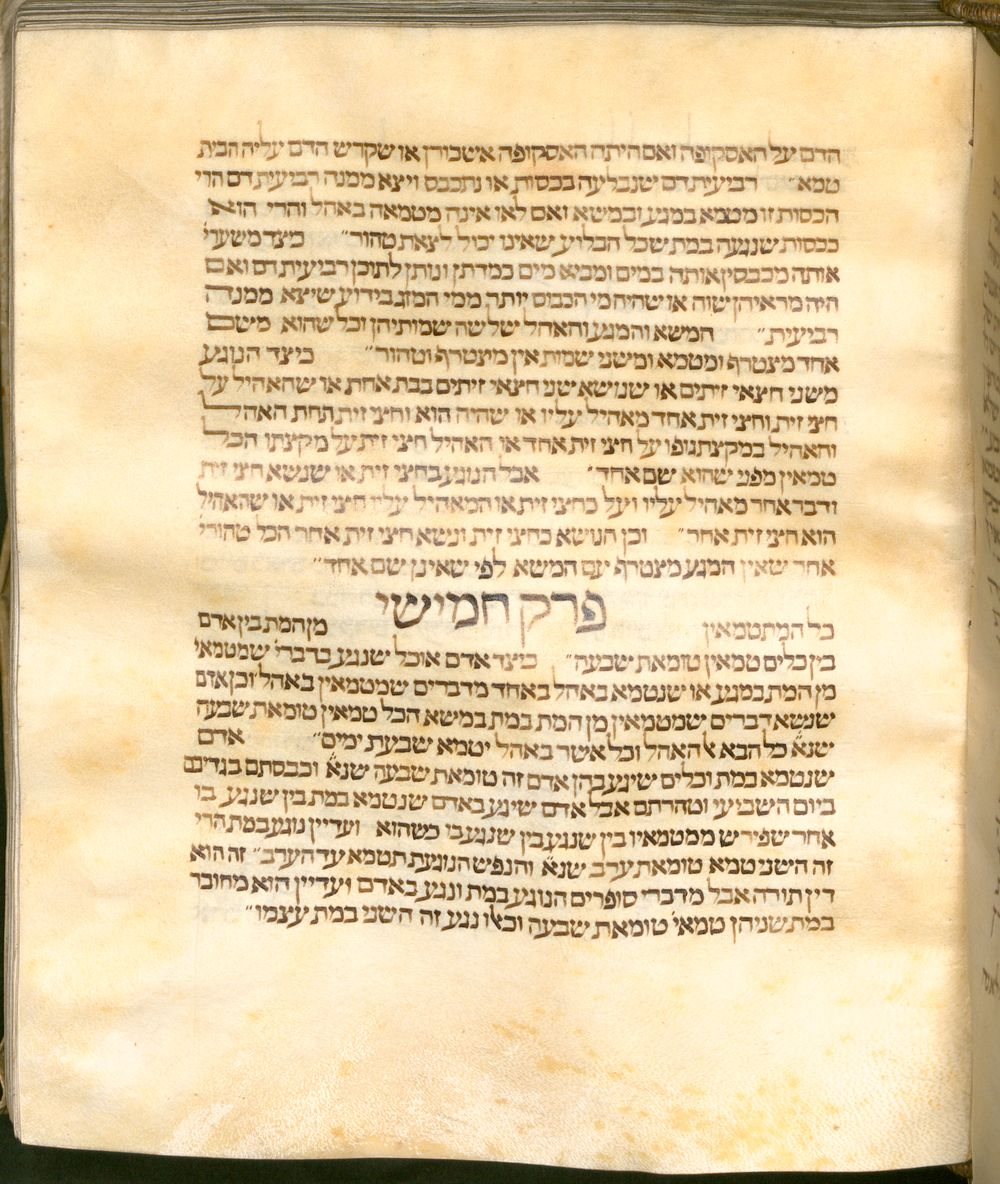 הדם על האסקופה ואם היתה האסקופה אשבורן או שקרש הדם עליה הבית
טמא״ רביעית דם שנבלעה בכסות או נתכבס ויצא ממנה רביעית דם הרי
הכסות זו מטמא במגע ובמשא ואם לאו אינה מטמאה באהל והרי הוא
ככסות שנגעה במת שכל הבלוע שאינו יכול לצאת טהור״ כיצד משערי׳
אותה מכבסין אותה במים ומביא מים כמדתן ונותן לתוכן רביעית דם ואם
היה מראיהן שוה או שהיה מי הכבוס יותר ממי המזג בידוע שיצא ממנה
רביעית״ המשא והמגע והאהל שלשה שמותיהן וכל שהוא משם
אחד מצטרף ומטמא ומשני שמות אין מצטרף וטהור״ כיצד הנוגע
משני חצאי זיתים או שנושא שני חצאי זיתים בבת אחת או שהאהיל על
חצי זית וחצי זית אחד מאהיל עליו או שהיה הוא וחצי זית תחת האהל
והאהיל במקצת גופו על חצי זית אחד או האהיל חצי זית על מקצתו הכל
טמאין מפני שהוא שם אחד״ אבל הנוגע בחצי זית או שנשא חצי זית
ודבר אחר מאהיל עליו ועל כחצי זית או המאהיל עליו חצי זית או שהאהיל
הוא חצי זית אחר״ וכן הנושא כחצי זית ונשא חצי זית אחר הכל טהורי׳
אחר שאין המגע מצטרף עם המשא לפי שאינן שם אחד״
פרק חמישי
כל המתטמאין מן המת בין אדם
בין כלים טמאין טומאת שבעה״ כיצד אדם או כל שנגע בדברי׳ שמטמאי׳
מן המת במגע או שנטמא באהל באחד מדברים שמטמאין באהל וכן אדם
שנשא דברים שמטמאין מן המת במת במשא הכל טמאין טומאת שבעה
שנא׳ כל הבא אל האהל וכל אשר באהל יטמא שבעת ימים״ אדם
שנטמא במת וכלים שיגע בהן אדם זה טומאת שבעה שנא׳ וכבסתם בגדיכם
ביום השביעי וטהרתם אבל אדם שיגע באדם שנטמא במת בין שנגע בו
אחר שפירש ממטמאיו בין שנגע בין שנגע בו כשהוא ועדיין נוגע במת הרי
זה השני טמא טומאת ערב שנא׳ והנפש הנוגעת תטמא עד הערב״ זה הוא
דין תורה אבל מדברי סופרים הנוגע במת ונגע באדם ועדיין הוא מחובר
במת שניהן טמאי׳ טומאת שבעה וכאלו נגע זה השני במת עצמו״